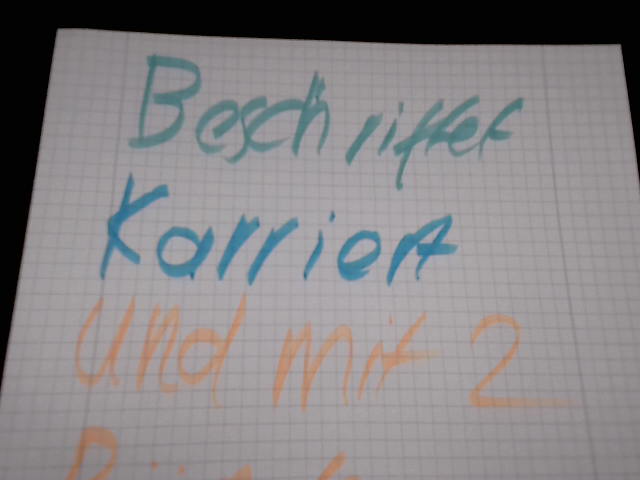 Beschriftet
Karriert
und mit 2